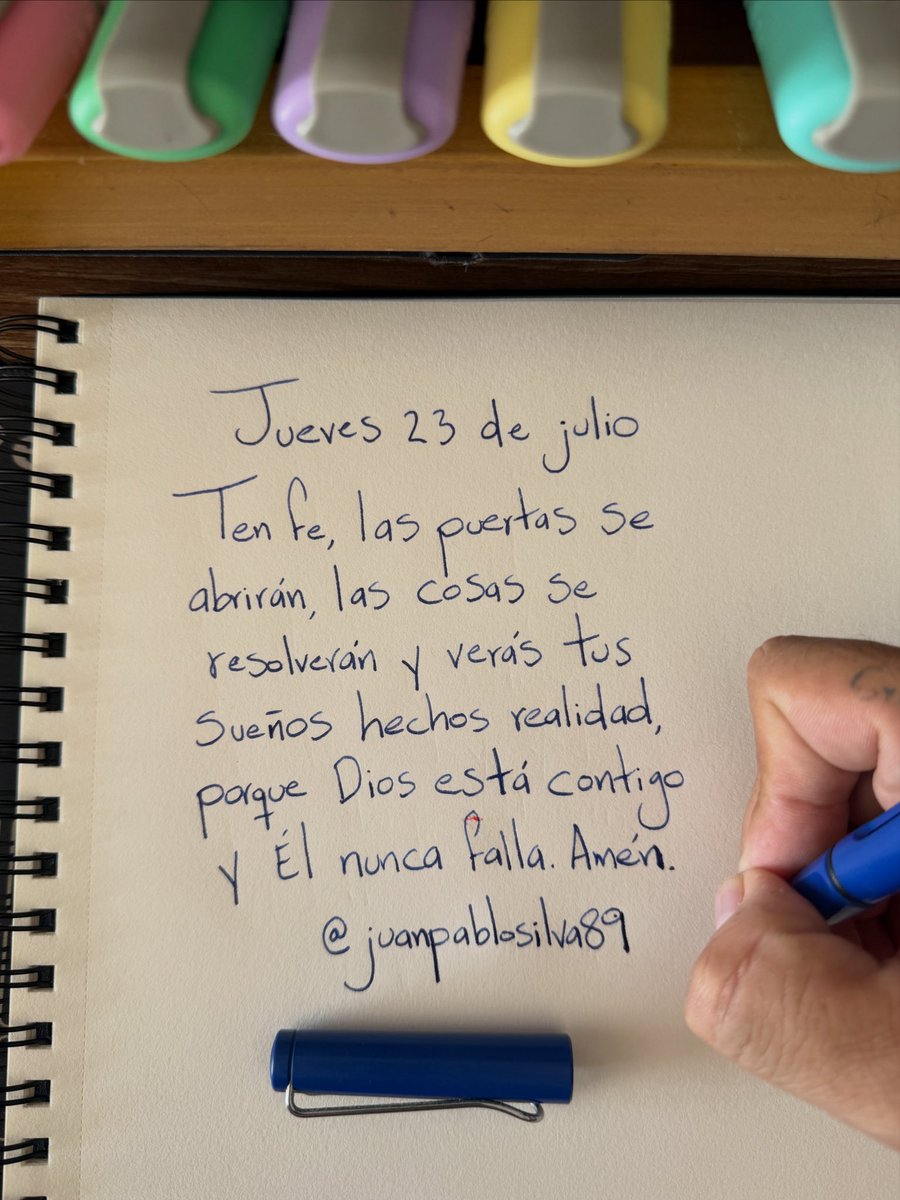 Jueves 23 de julio
Ten fe, las puertas se
abrirán, las cosas se
resolverán y verás tus
sueños hechos realidad,
porque Dios está contigo
y Él nunca falla. Amén.
@juanpablosilva89